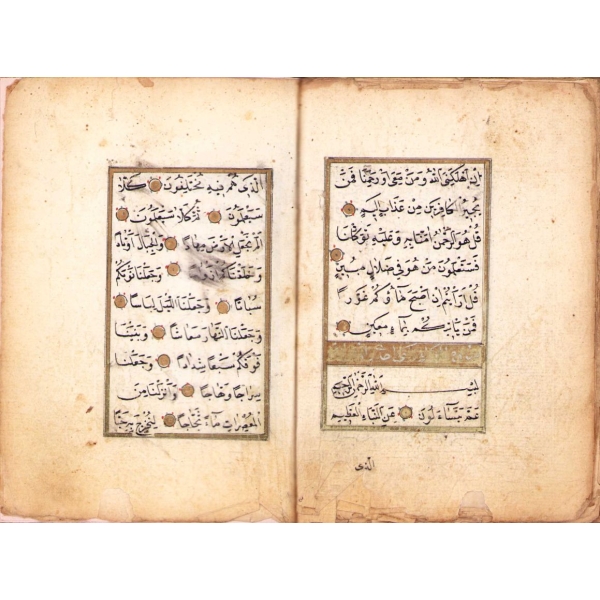 اِنْ اَهْلَكَنِيَ اللّٰهُ وَمَنْ مَعِيَ اَوْ رَحِمَنَا فَمَنْ
يُجِيرُ الْكَافِرِينَ مِنْ عَذَابٍ اَلِيمٍ
قُلْ هُوَ الرَّحْمٰنُ اٰمَنَّا بِهِ وَعَلَيْهِ تَوَكَّلْنَا
فَسَتَعْلَمُونَ مَنْ هُوَ فِي ضَلَالٍ مُبِينٍ
قُلْ اَرَاَيْتُمْ اِنْ اَصْبَحَ مَاؤُكُمْ غَوْرًا
فَمَنْ يَأْتِيكُمْ بِمَاءٍ مَعِينٍ
بِسْمِ اللّٰهِ الرَّحْمٰنِ الرَّحِيمِ
عَمَّ يَتَسَاءَلُونَ عَنِ النَّبَاِ الْعَظِيمِ
الذى
الَّذِي هُمْ فِيهِ مُخْتَلِفُونَ كَلَّا
سَيَعْلَمُونَ ثُمَّ كَلَّا سَيَعْلَمُونَ
اَلَمْ نَجْعَلِ الْاَرْضَ مِهَادًا وَالْجِبَالَ اَوْتَادًا
وَخَلَقْنَاكُمْ اَزْوَاجًا وَجَعَلْنَا نَوْمَكُمْ
سُبَاتًا وَجَعَلْنَا الَّيْلَ لِبَاسًا
وَجَعَلْنَا النَّهَارَ مَعَاشًا وَبَنَيْنَا
فَوْقَكُمْ سَبْعًا شِدَادًا وَجَعَلْنَا
سِرَاجًا وَهَّاجًا وَاَنْزَلْنَا مِنَ
الْمُعْصِرَاتِ مَاءً ثَجَّاجًا لِنُخْرِجَ بِهِ حَبًّا